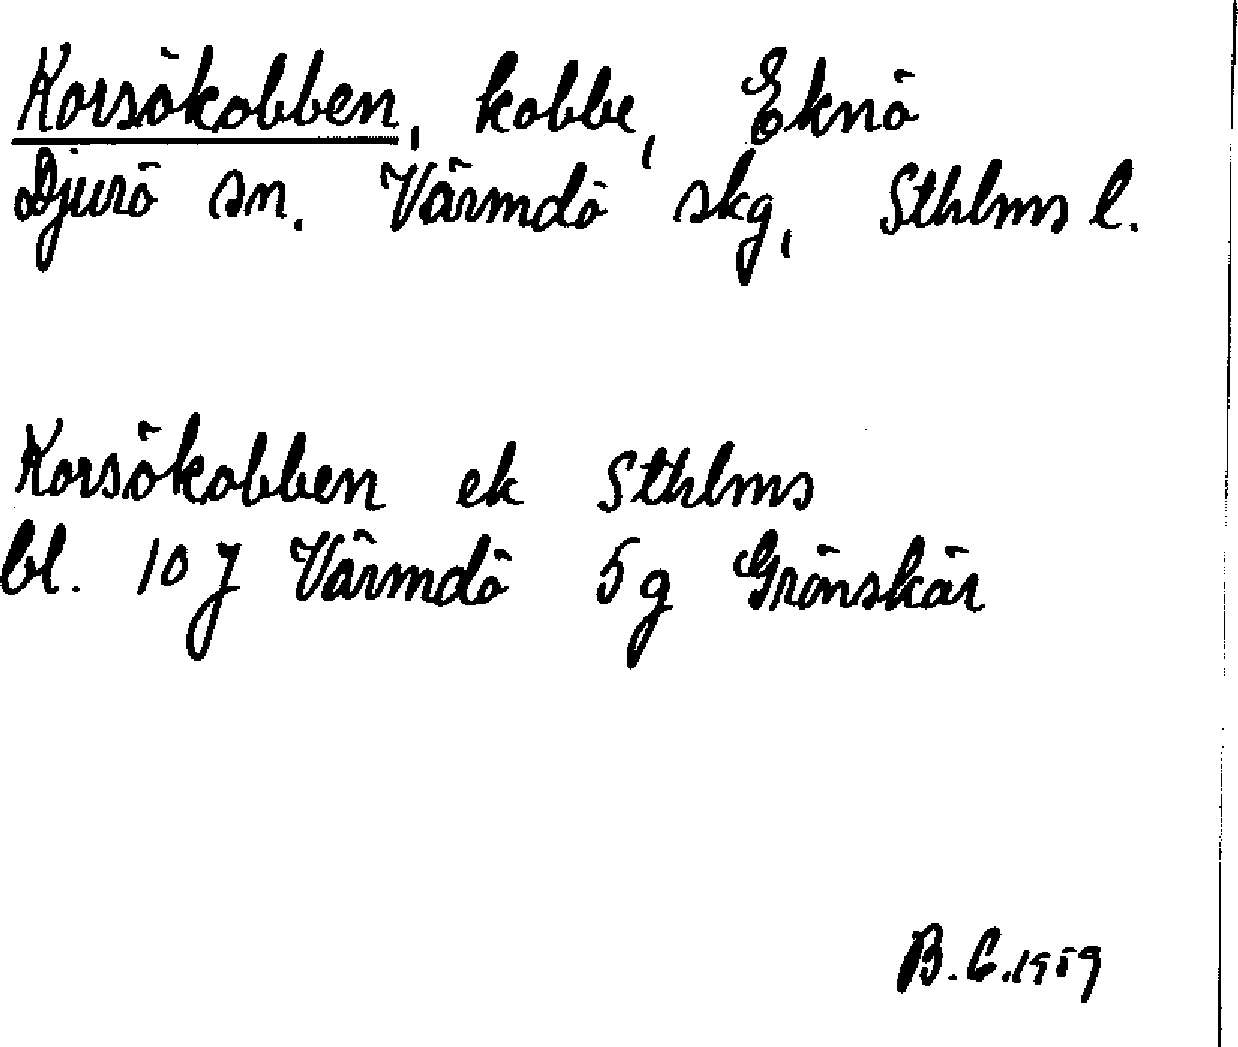 Korsökobben, kobbe, Eknö
Djurö sn. Värmdö skg, Sthlms l.
Korsökobben ek Sthlms
bl. 10 J Värmdö 5 g Grönskär
B.C.1959